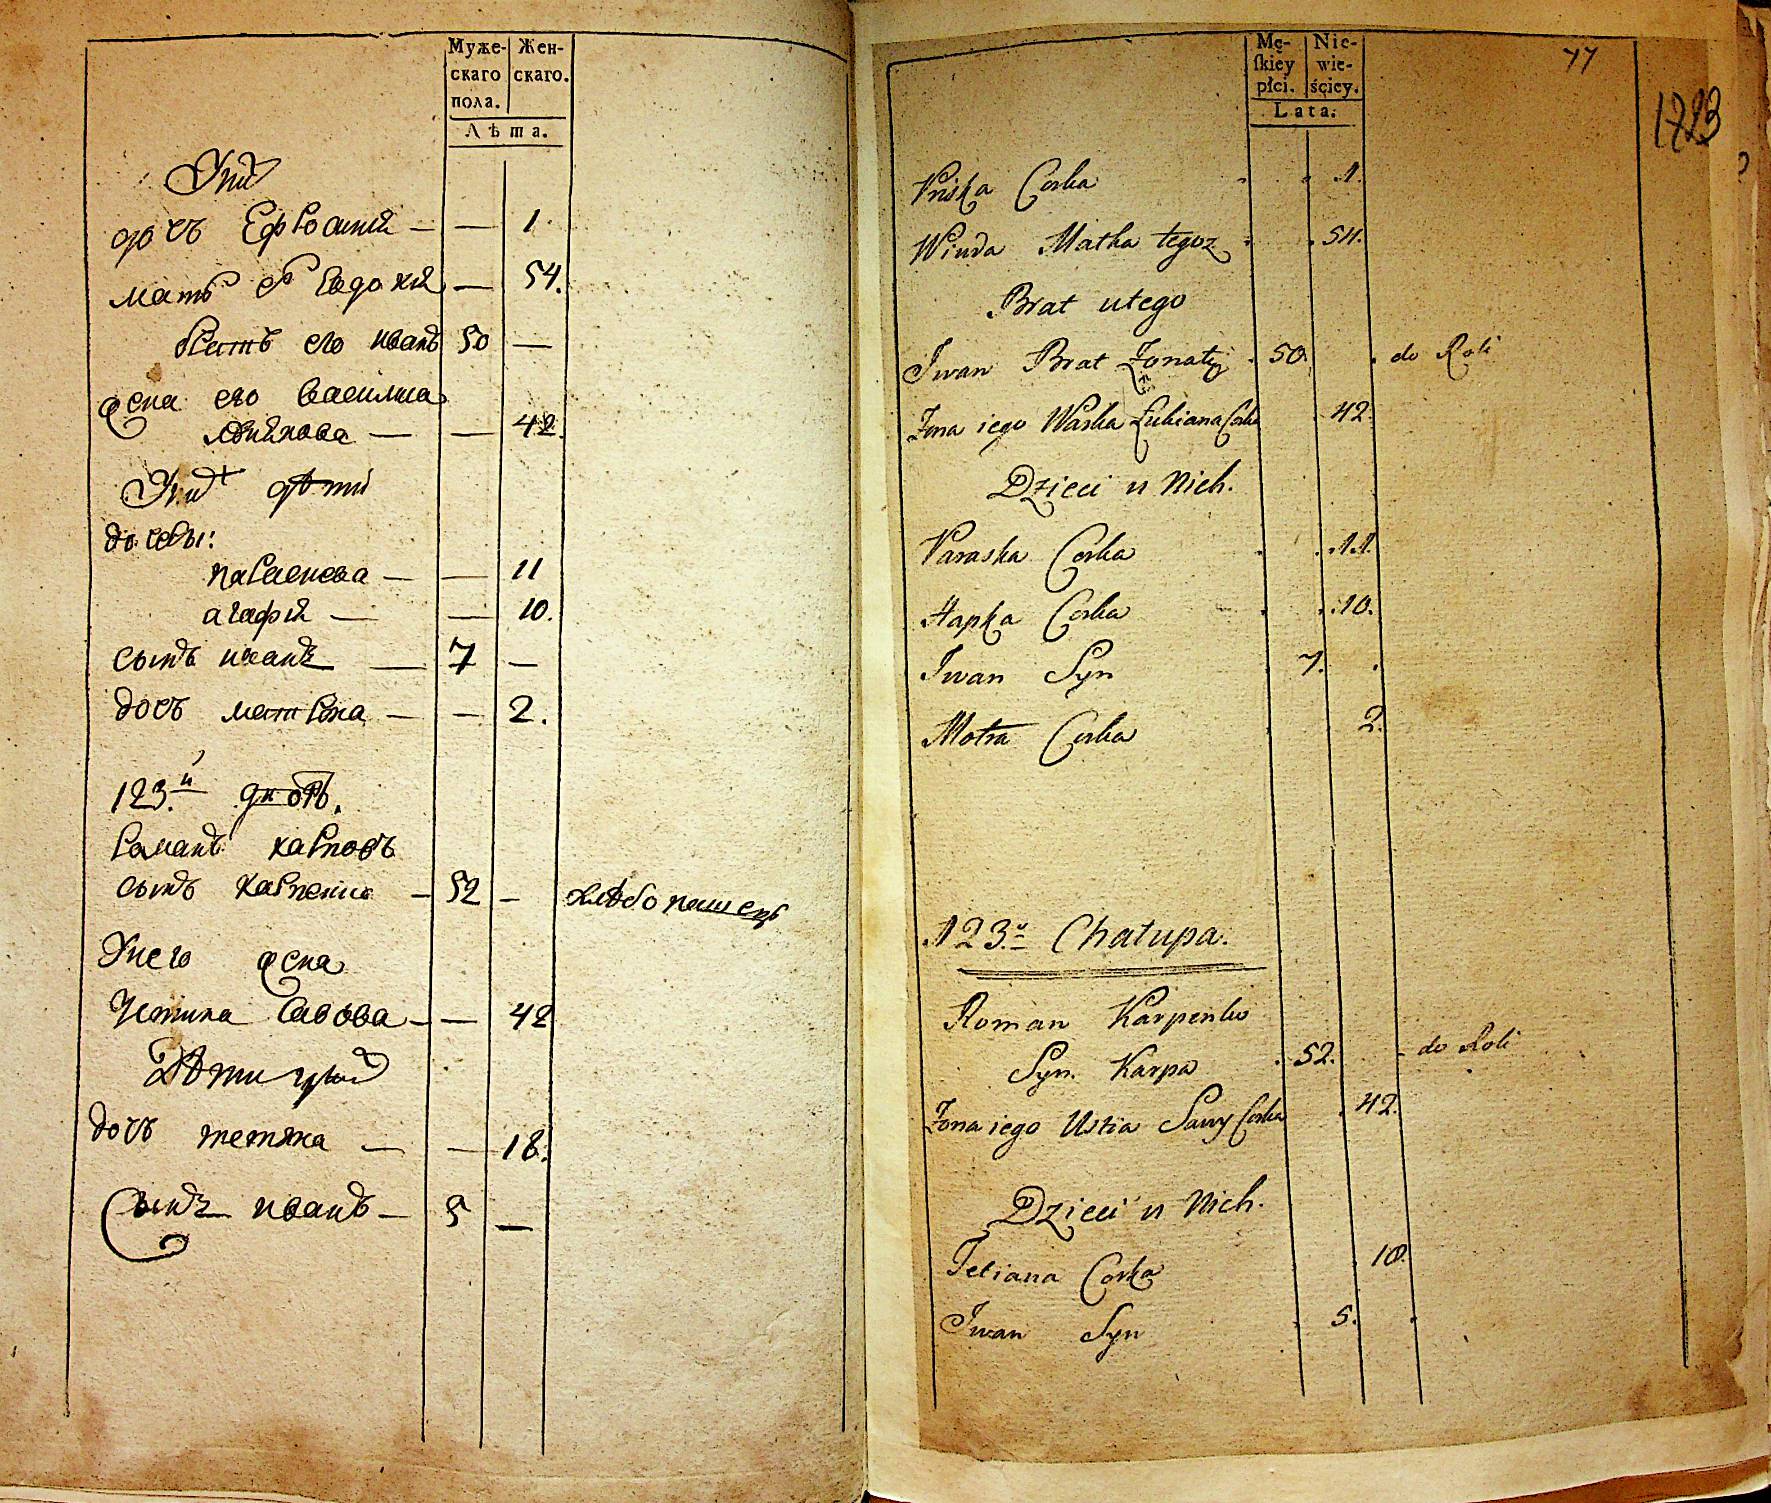 Муже-
скаго
пола.
Жен-
скаго.
Лѣта.
У нихъ
дочь Ефросинія — — 1.
мать ево Евдокия — 54.
братъ его иванъ 50 —
жена его василиса
— — 42.
У нихъ дѣти
дочери:
параскева — — 11
агафия — — 10.
сынъ иванъ — 7 —
дочь матрона — — 2.
123.й дворъ.
романъ карповъ
сынъ карпенко — 52 — хлѣбопашецъ
У него жена
Устина Савова — — 42
Дѣти у нихъ
дочь тетяна — — 18.
Сынъ иванъ — 5 —
Mę-
ſkiey
płci.
Nie-
wie-
ściey.
Lata.
77
1723
Priska Corka 1.
Matka tegoz 54.
Brat u tego
Iwan Brat Zonaty 50. do Roli
Zona iego Waska Łukiana Corka 42.
Dzieci u Nich.
Paraska Corka 11.
Hapka Corka 10.
Iwan Syn 7.
Motra Corka 2.
123.й Chatupa.
Roman Karpenko
Syn Karpa 52. do Roli
Zona iego Ustia Sawy Corka 42.
Dzieci u Nich.
Tetiana Corka 18.
Iwan Syn 5.